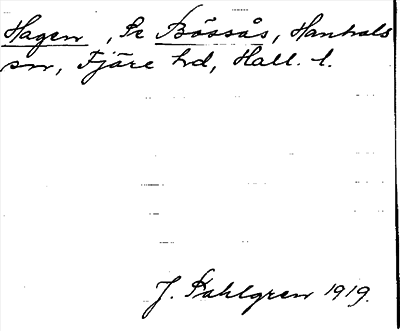 Hagen, Se Bössås, Hanhals
sn, Fjäre hd, Hall. l.
J. Sahlgren 1919.